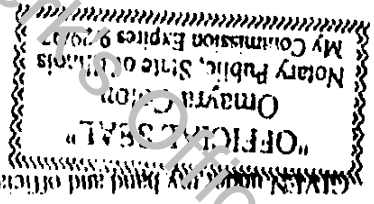 GIVEN under my hand and official
"OFFICIAL SEAL"
Omayra
Notary Public, State of Illinois
My Commission Expires 9/29/97
rk's Offic